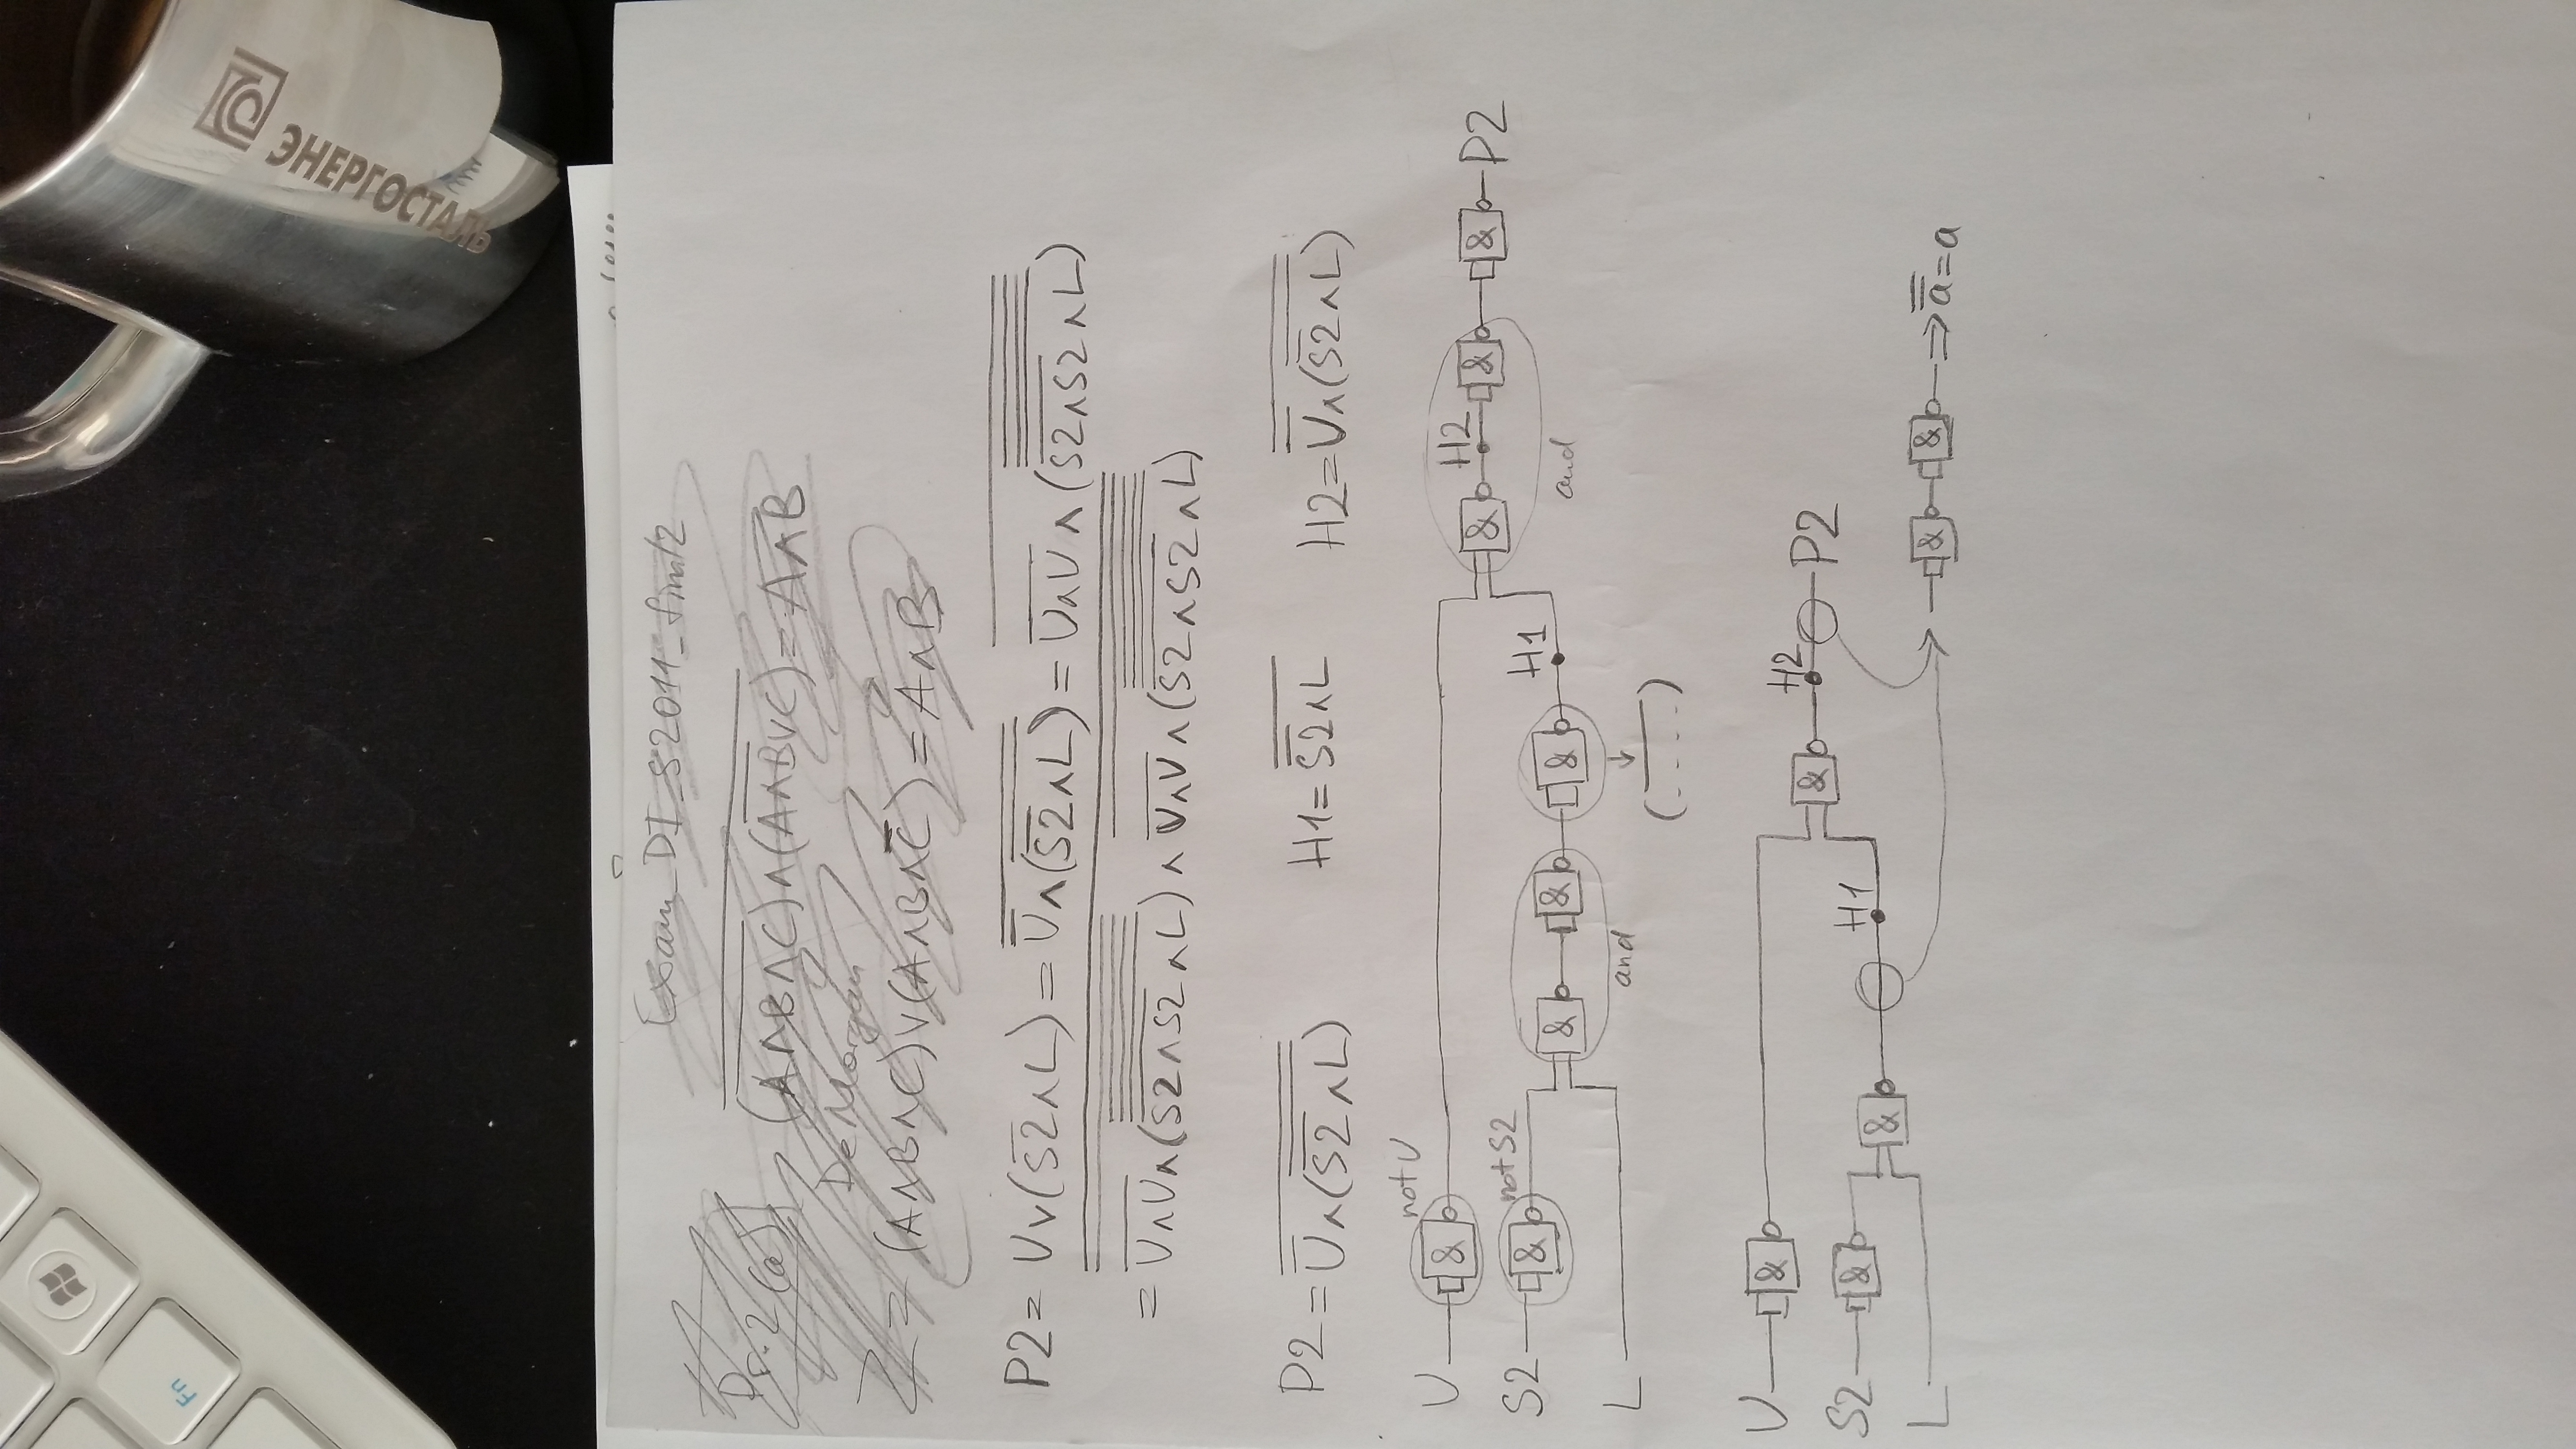 Fn
ЭНЕРГОСТАЛЬ
Exam_DI_S2011_fin/2
Pr.2(a) (A∧B∧C)∧(A∧B∨C) = A∧B
De Morgan
Z = (A∧B∧C)∨(A∧B∧C̅) = A∧B
P2 = U∨(S̅2̅∧L) = U̅∧(S̅2̅∧L) = U∧U∧(S2∧S2∧L)
= U∧U∧(S2∧S2∧L)∧U∧U∧(S2∧S2∧L)
P2 = U̅∧(S̅2̅∧L) H1 = S̅2̅∧L H2 = U̅∧(S̅2̅∧L)
not U
U & & H2 & & P2
S2 & not S2 & & & H1
and
L and
(....)
U & & H2 P2
S2 & & H1
L & & ⇒ a̿ = a